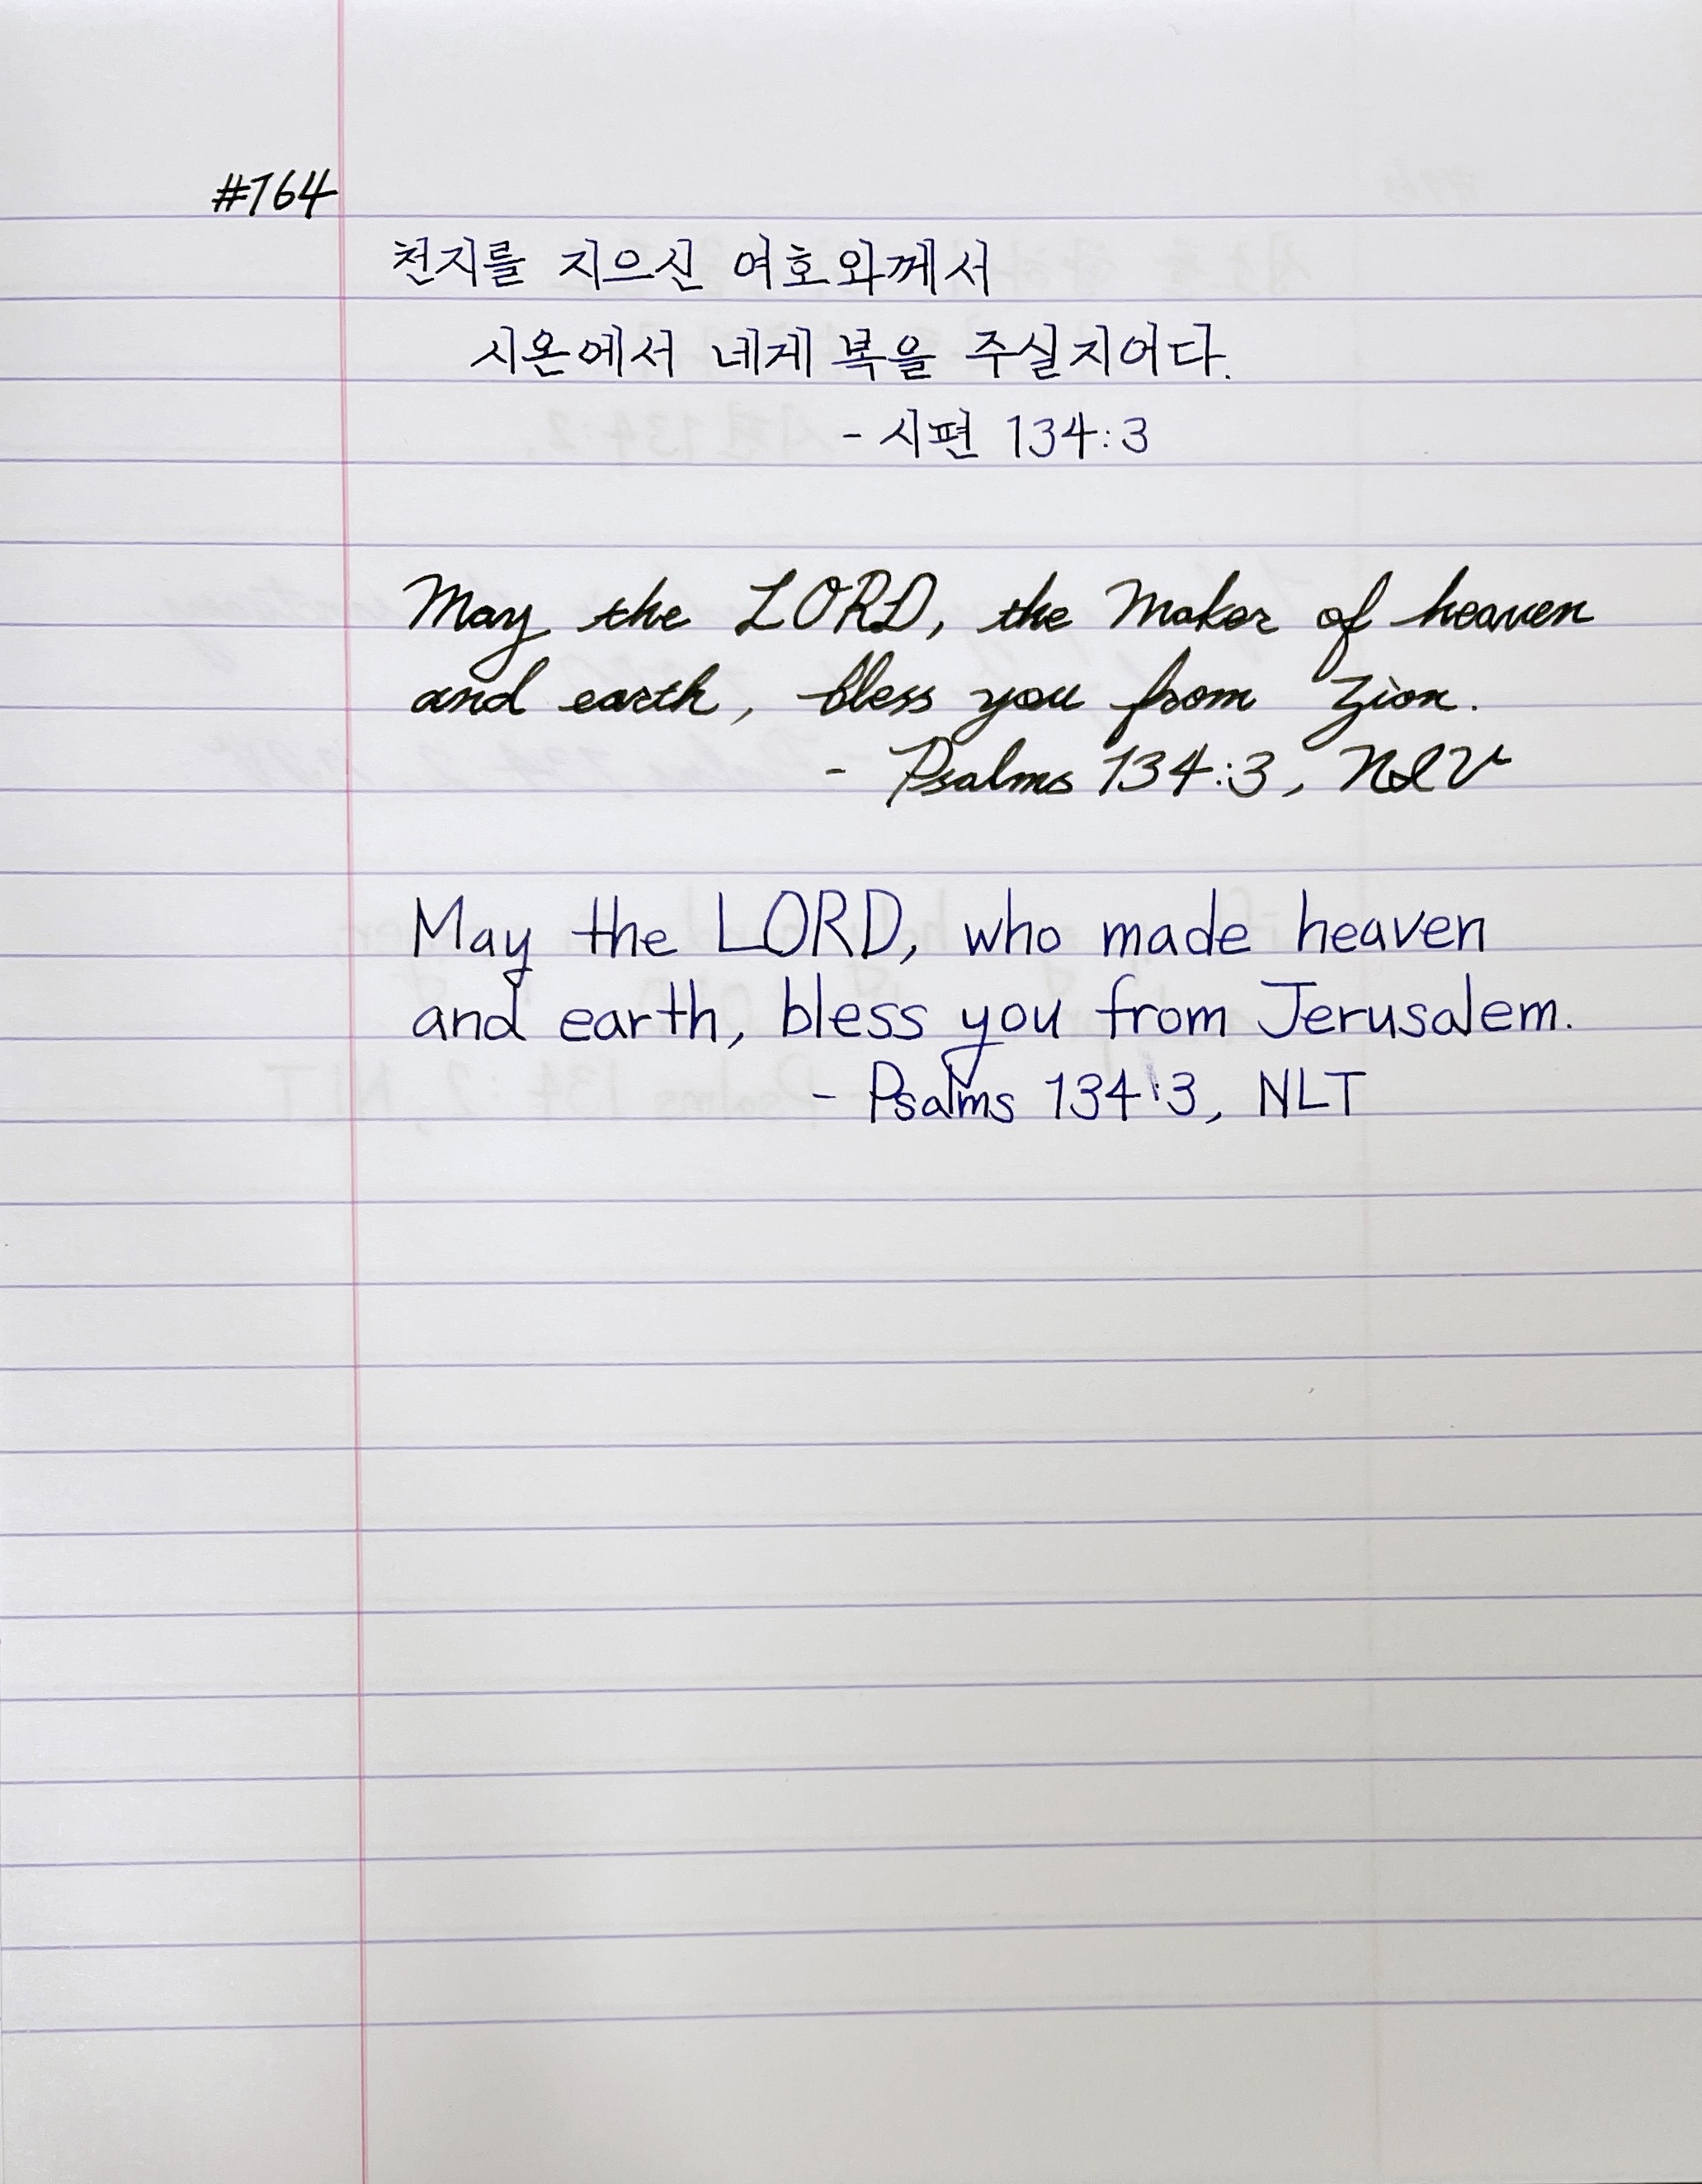 #764
천지를 지으신 여호와께서
시온에서 네게 복을 주실지어다.
- 시편 134:3
May the LORD, the Maker of heaven
and earth, bless you from Zion.
- Psalms 134:3, NIV
May the LORD, who made heaven
and earth, bless you from Jerusalem.
- Psalms 134:3, NLT